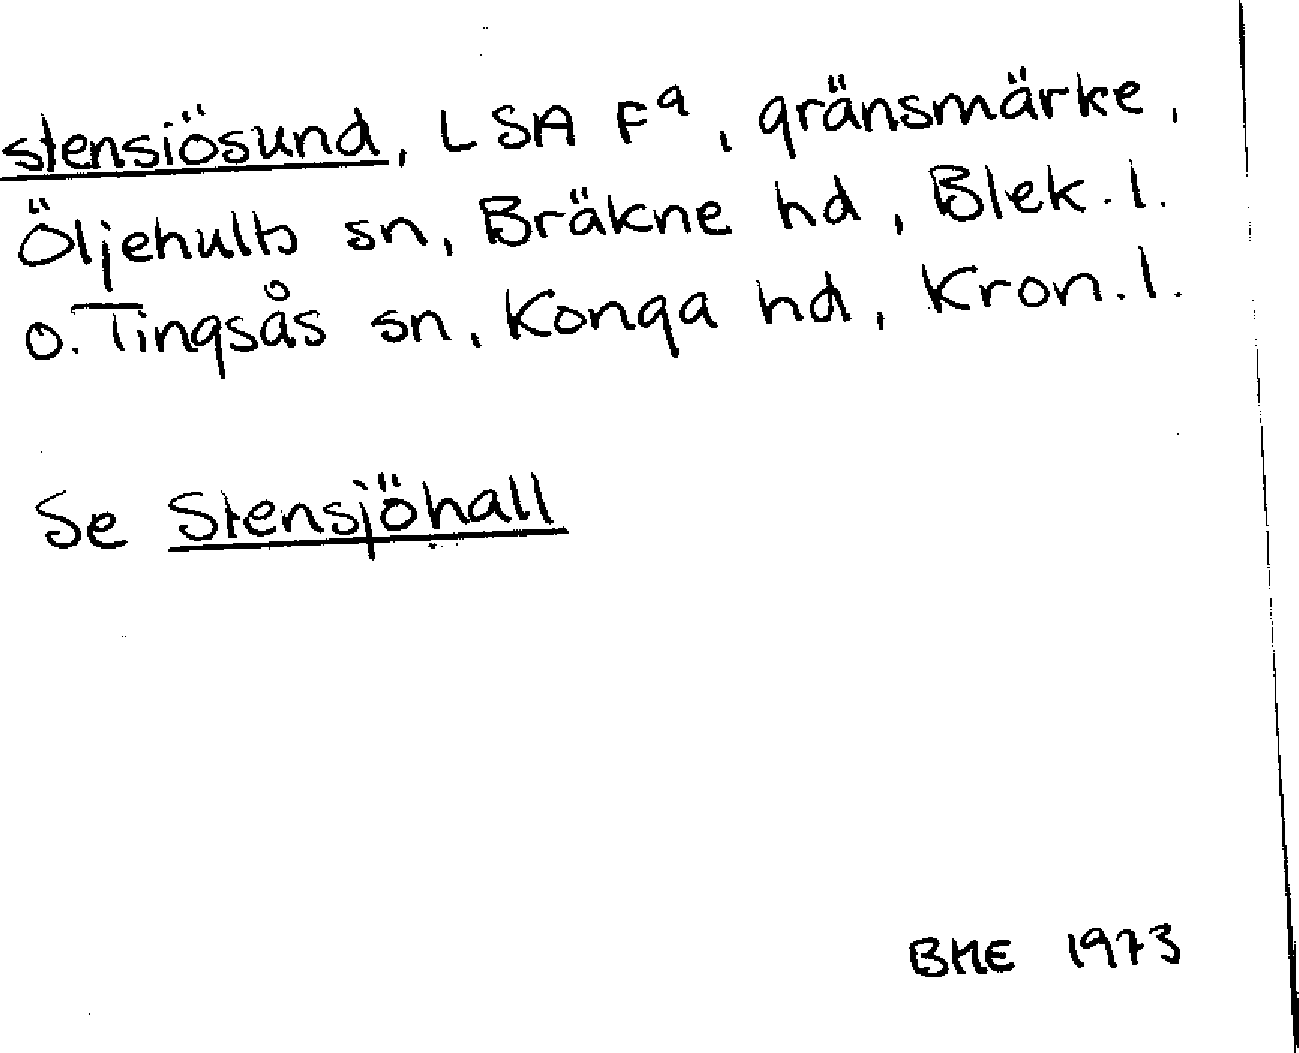 stensiösund, LSA Fª, gränsmärke,
Öljehults sn, Bräkne hd, Blek. l.
o. Tingsås sn, Konga hd, Kron. l.
Se Stensjöhall
BME 1973